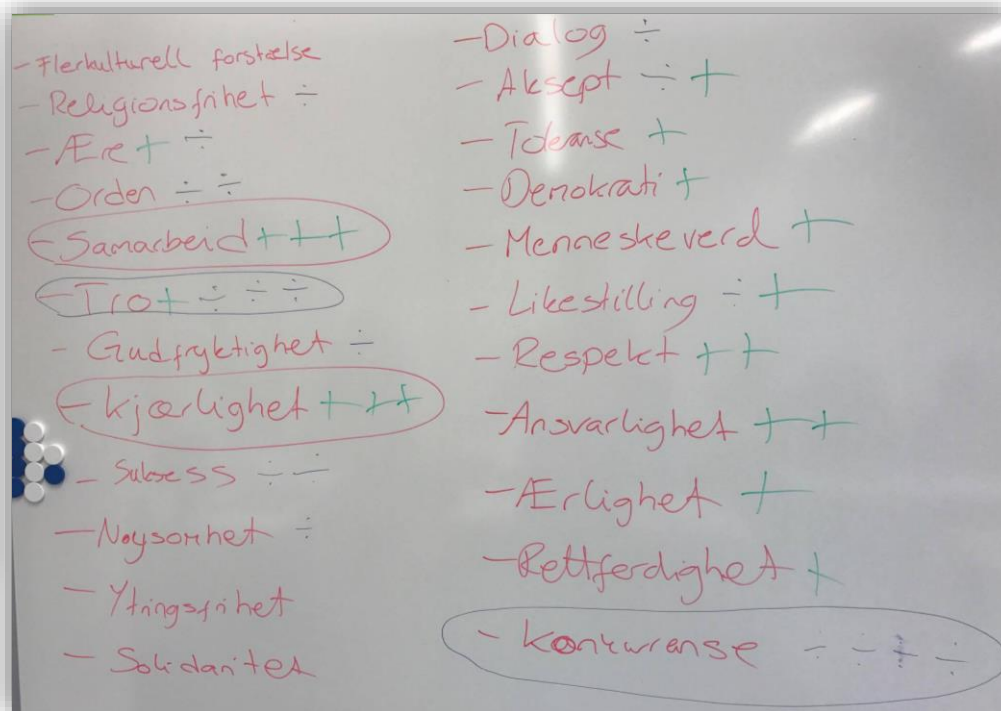 - Flerkulturell forståelse
- Religionsfrihet ÷
- Ære + ÷
- Orden ÷ ÷
- Samarbeid + + +
- Tro + ÷ ÷ ÷
- Gudfryktighet ÷
- kjærlighet + + +
- Suksess ÷ ÷
- Nøysomhet ÷
- Ytringsfrihet
- Solidaritet
- Dialog ÷
- Aksept ÷ +
- Toleranse +
- Demokrati +
- Menneskeverd +
- Likestilling ÷ +
- Respekt + +
- Ansvarlighet + +
- Ærlighet +
- Rettferdighet +
- Konkuranse ÷ ÷ ÷ ÷